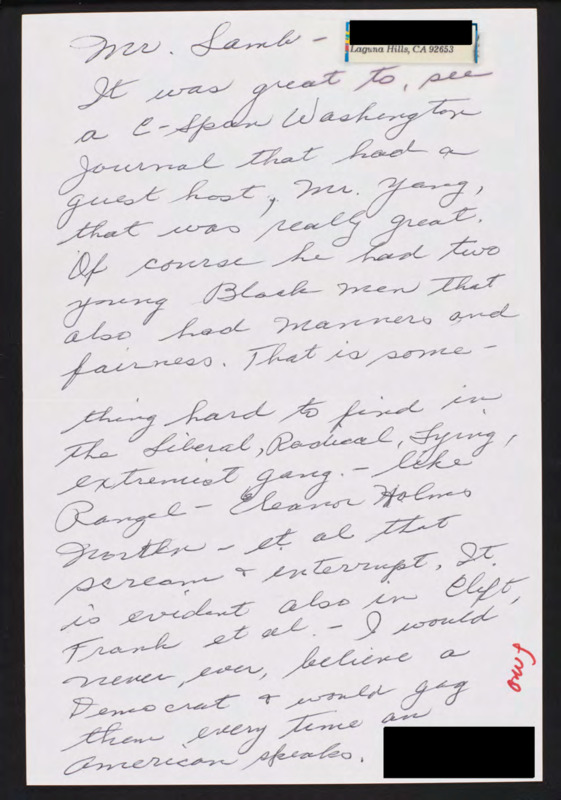 Mr. Lamb -
Laguna Hills, CA 92653
It was great to, see
a C-Span Washington
Journal that had a
guest host, Mr. Yang,
that was really great.
Of course he had two
young Black men that
also had manners and
fairness. That is some-
thing hard to find in
the Liberal, Radical, Lying,
extremist gang. - like
Rangel - Eleanor Holms
Norton - et al that
scream & interrupt. It
is evident also in Clift,
Frank et al. - I would
never, ever, believe a
Democrat & would gag
them every time an
American speaks.